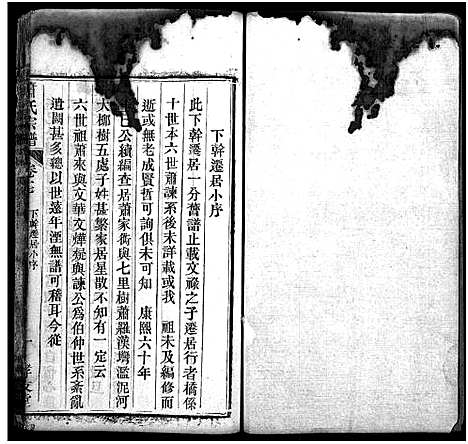 下幹遷居小序
此下幹遷居一分舊譜止載文祿之子遷居行者橘係
十世本六世蕭諫系後未詳載或我 祖未及編修而
逝或無老成賢哲可詢俱未可知 康熙六十年
公續編查居蕭家衖與七里樹蕭羅漢塆濫泥河
大柳樹五處子姓甚繁家居星散不知有一定云
六世祖蕭來與文華文燁凝與諫公爲伯仲世系紊亂
遺闕甚多總以世遠年湮無譜可稽耳今從
氏宗譜
卷之
下幹遷居小序
一